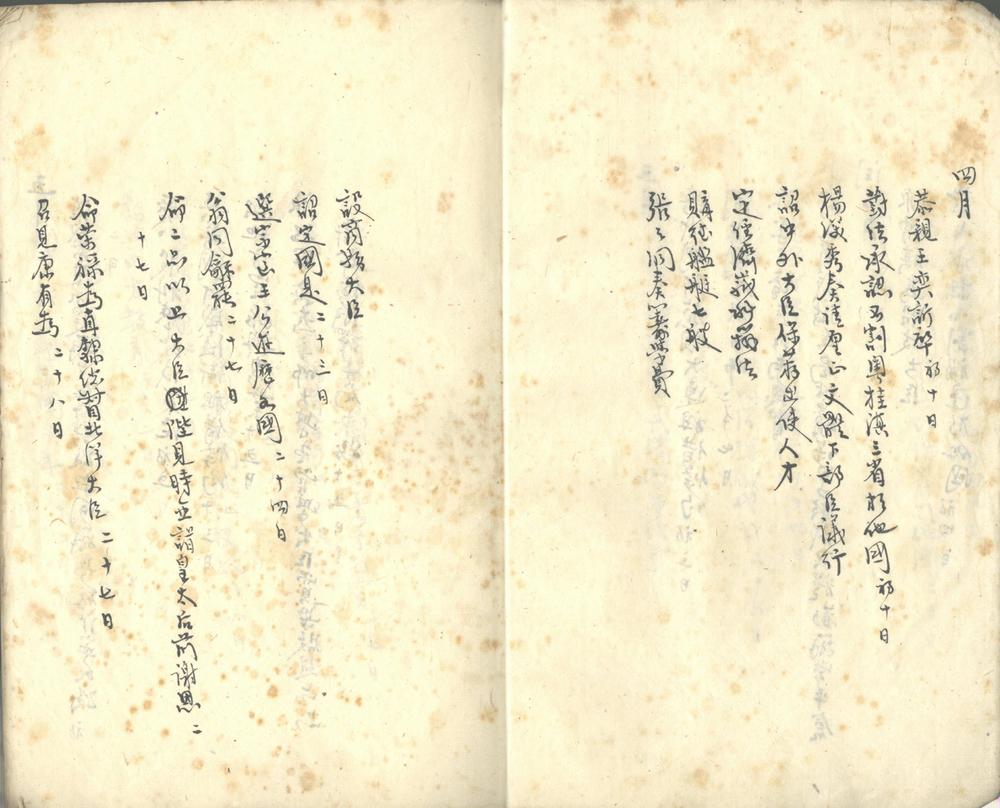 四月
恭親王奕訢薨 初十日
對法承認不割粵桂滇三省於他國 初十日
楊深秀奏請厘正文體下部臣議行
詔中外大臣保薦出使人才
定經濟歲舉辦法
購徑艦艇七艘
張之洞奏
設商務大臣
詔定國是 二十三日
選宗室王公遊歷各國 二十四日
翁同龢罷 二十七日
命二品以上大臣陛見時並詣皇太后前謝恩 二
十七日
命榮祿為直隸總督北洋大臣 二十七日
召見康有為 二十八日